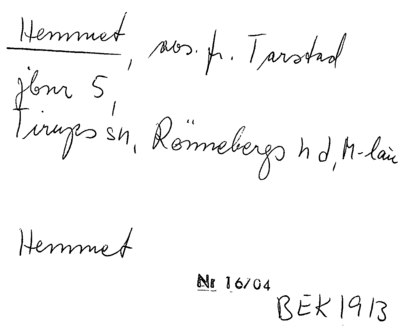 Hemmet, avs. fr. Tarstad
jbnr 5,
Tirups sn, Rönnebergs hd, M-län
Hemmet
Nr 16/04
BEK 1913